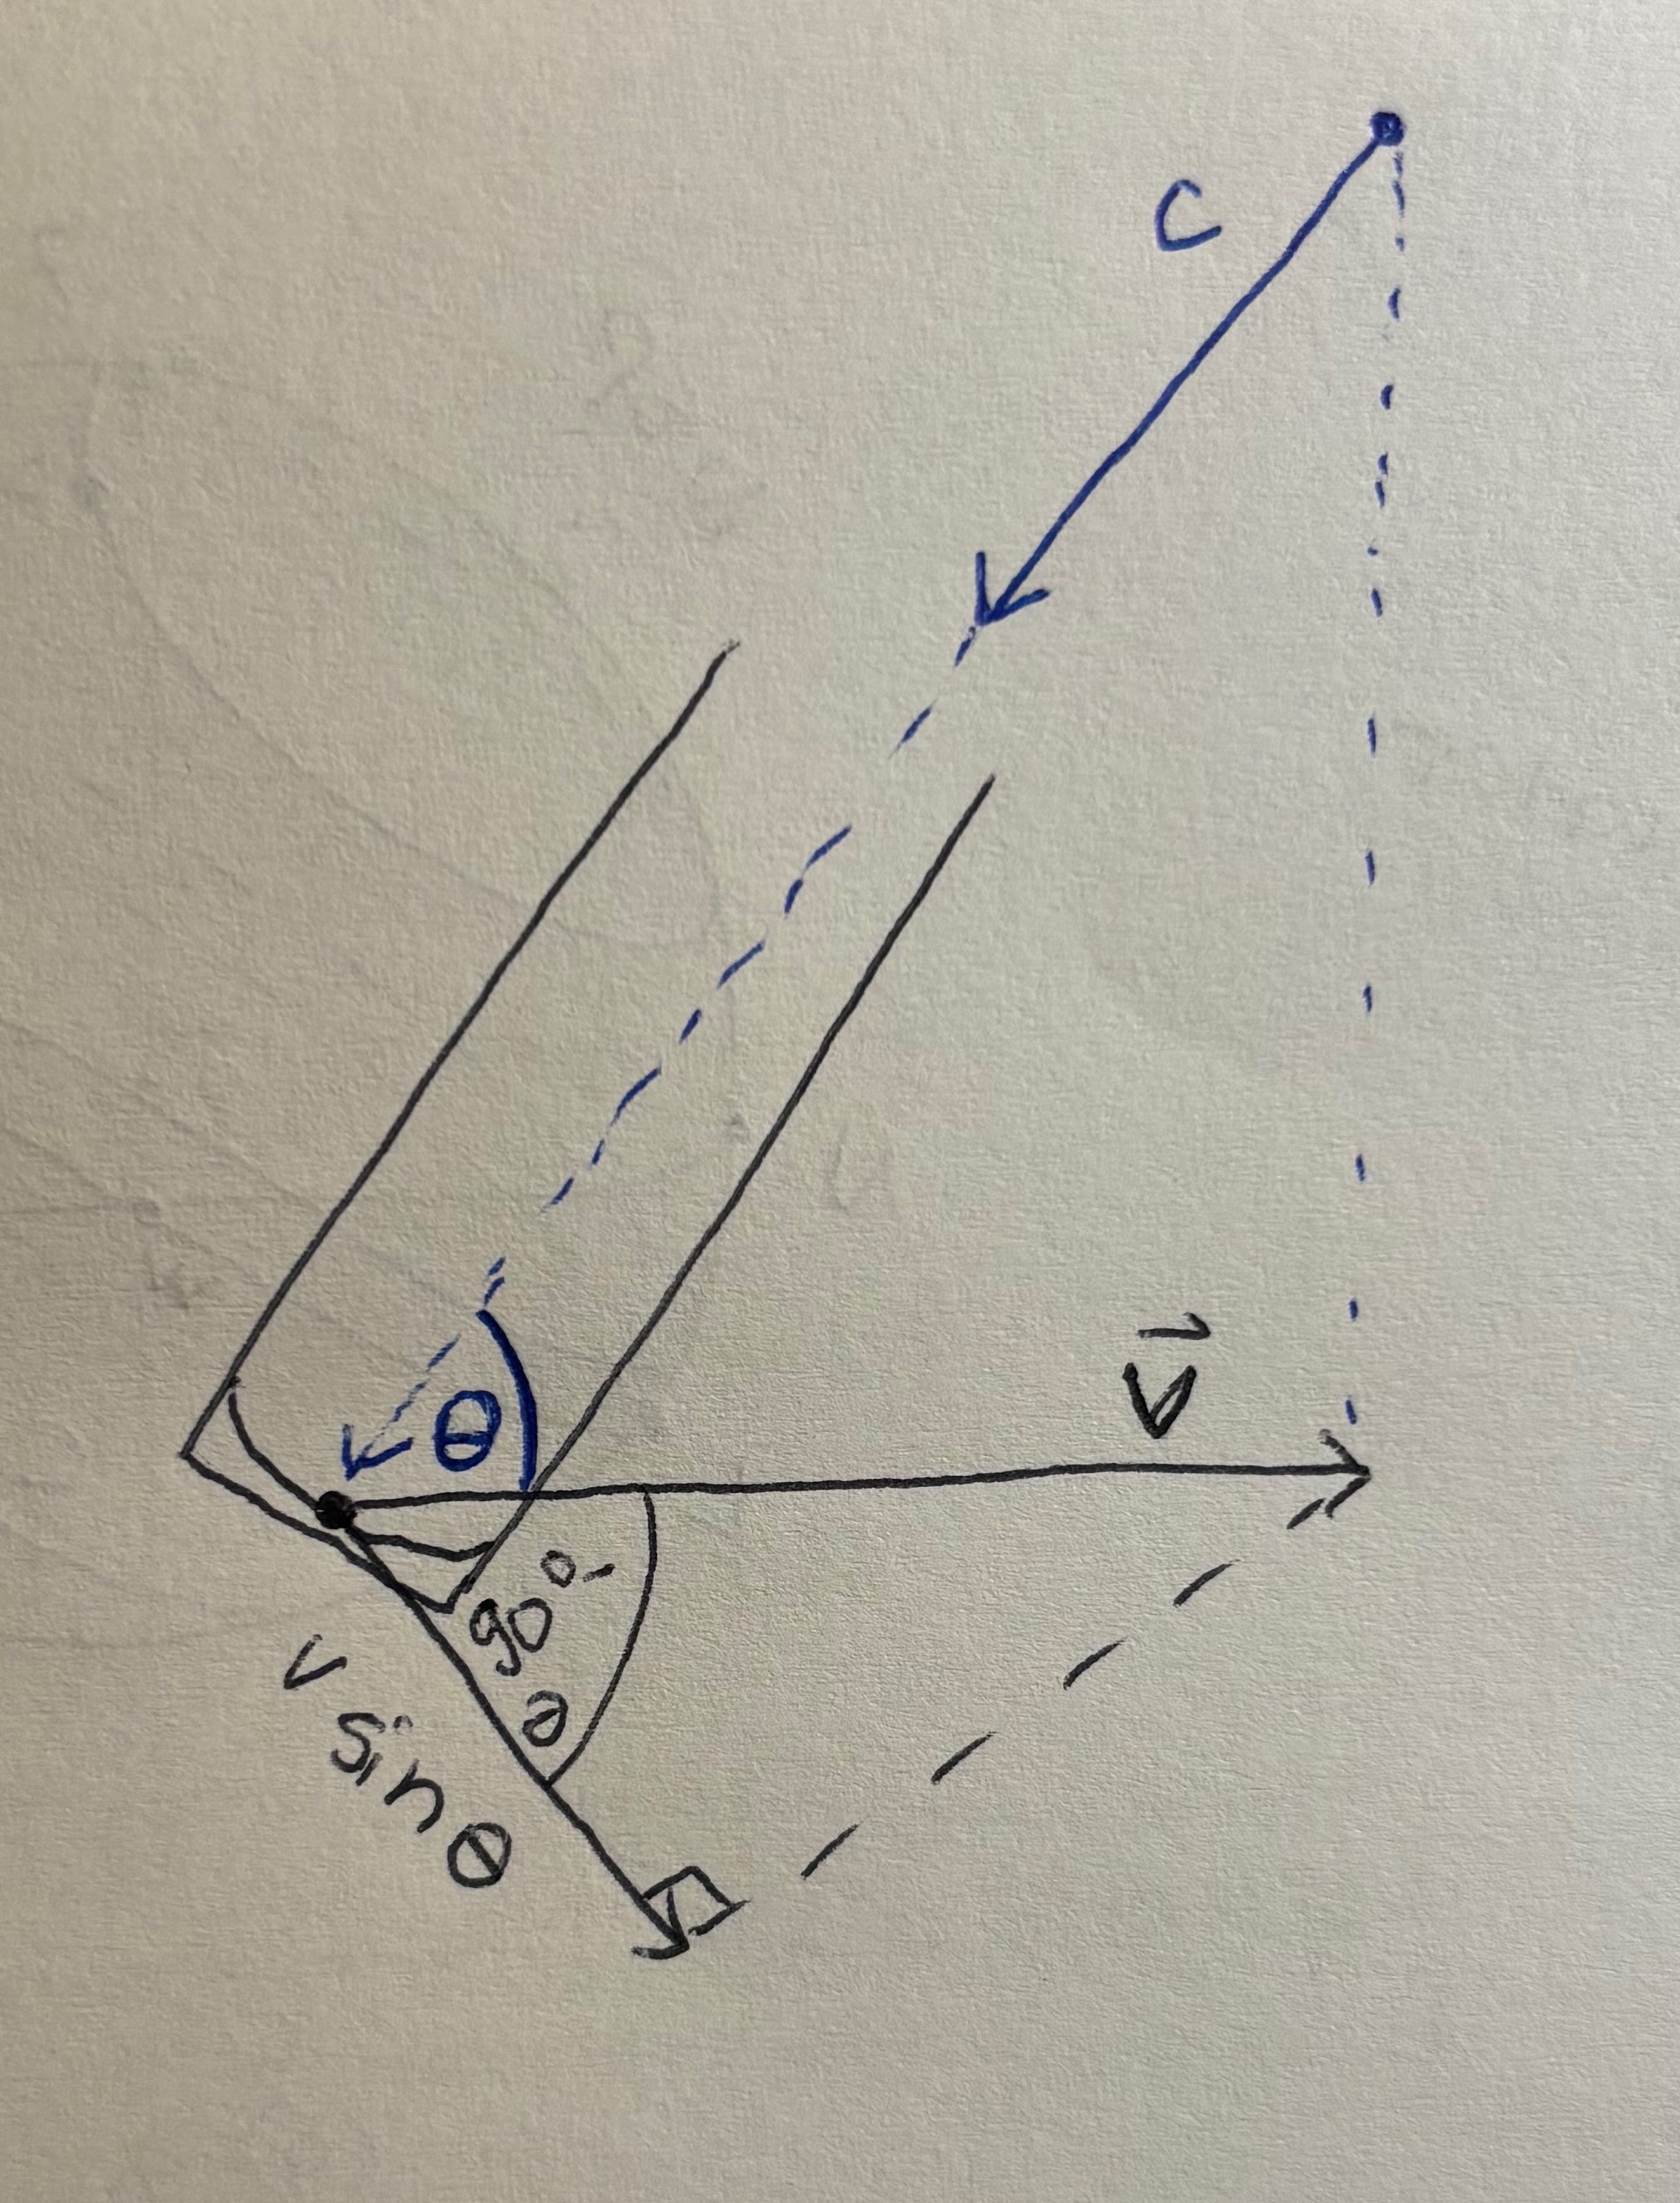 C
θ
v⃗
90°-
θ
v sin θ